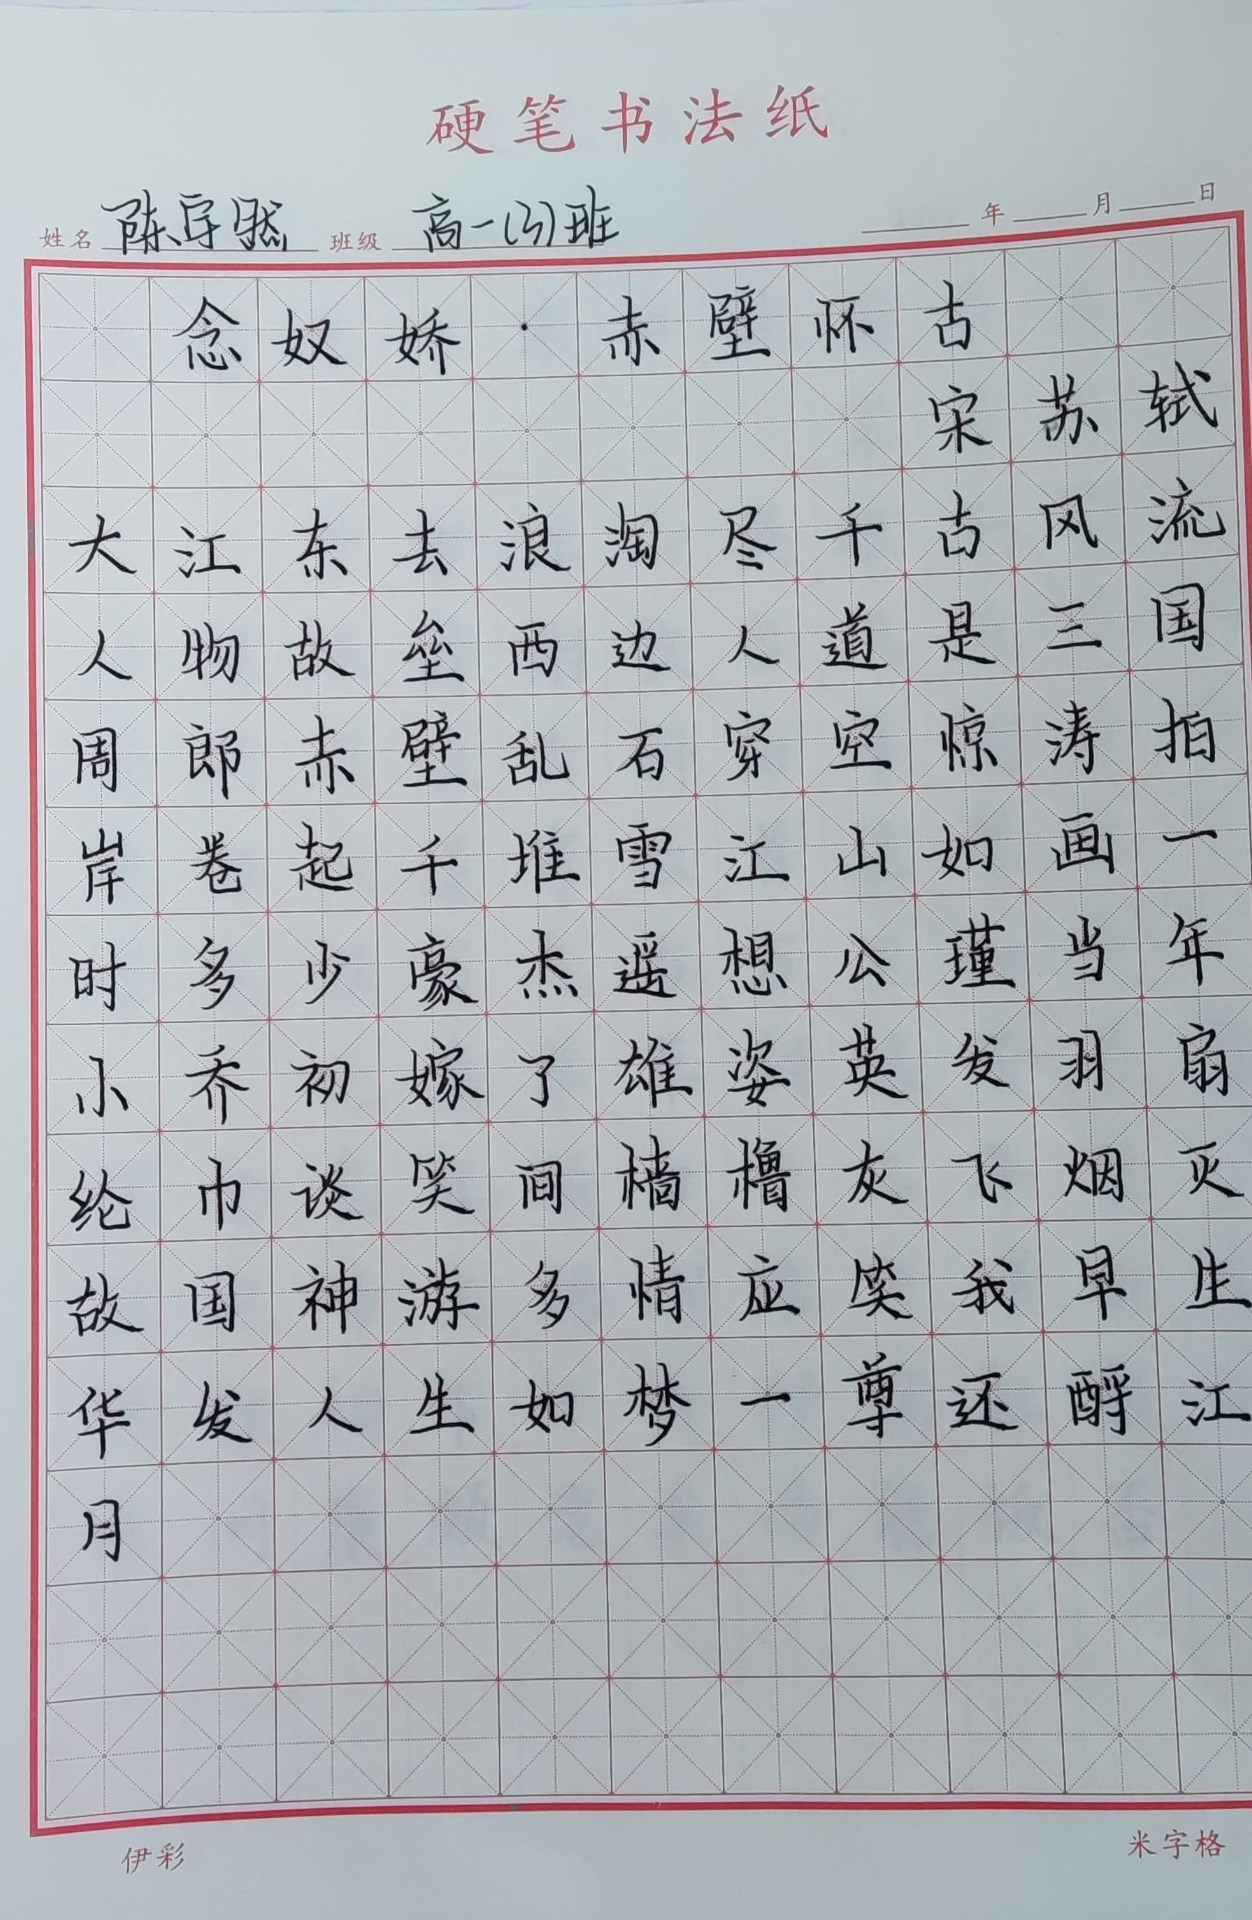 硬笔书法纸
姓名 陈宇然 班级 高一(3)班 年 月 日
念奴娇·赤壁怀古
宋苏轼
大江东去浪淘尽千古风流
人物故垒西边人道是三国
周郎赤壁乱石穿空惊涛拍
岸卷起千堆雪江山如画一
时多少豪杰遥想公瑾当年
小乔初嫁了雄姿英发羽扇
纶巾谈笑间樯橹灰飞烟灭
故国神游多情应笑我早生
华发人生如梦一尊还酹江
月
伊彩 米字格